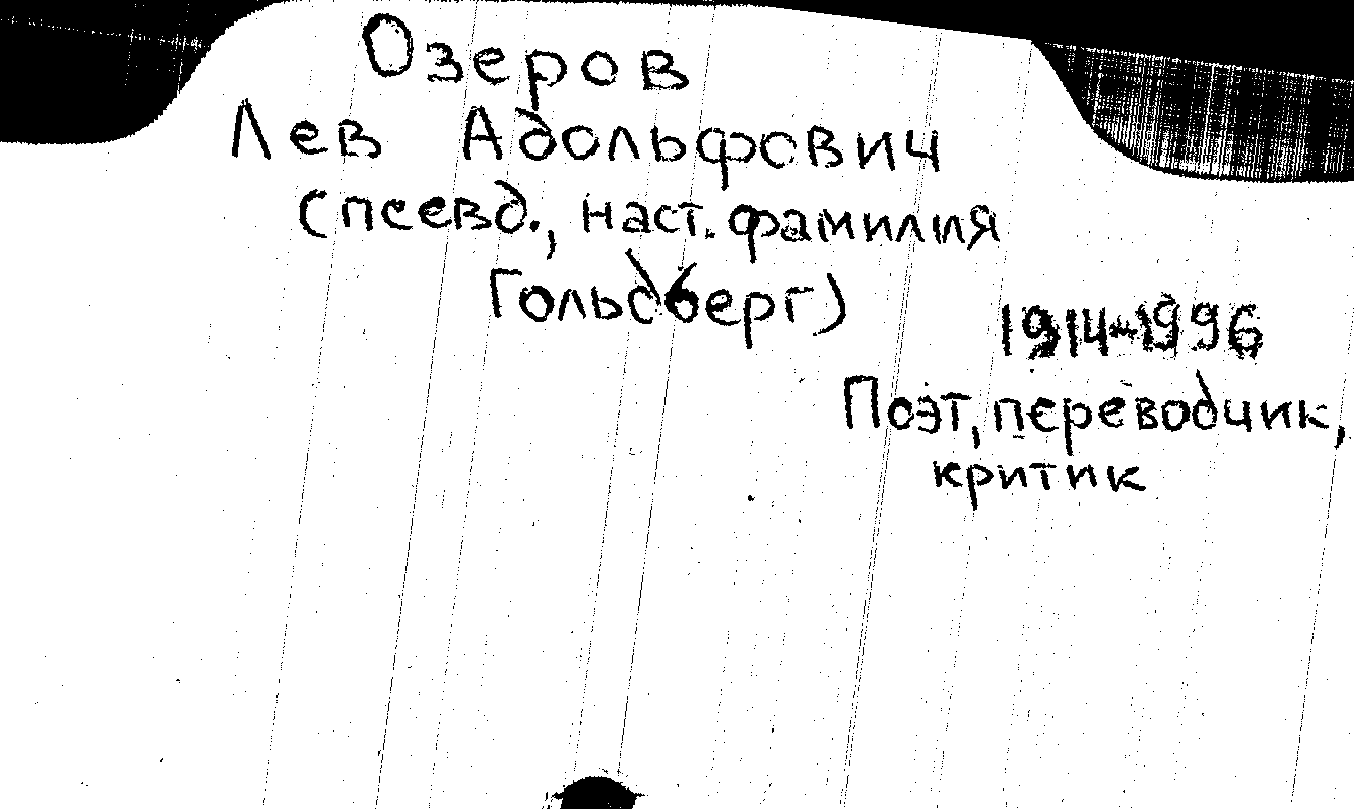 Озеров
Лев Адольфович
(псевд., наст. фамилия
Гольдберг)
1914-1996
Поэт, переводчик,
критик